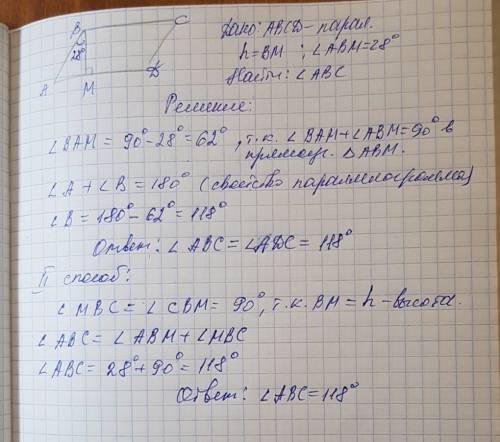 B C
28°
A M D
Дано: ABCD – парал.
h = BM ; ∠ABM = 28°
Найти: ∠ABC
Решение:
∠BAM = 90° – 28° = 62°, т.к. ∠BAM + ∠ABM = 90° в
прямоуг. △ABM.
∠A + ∠B = 180° (свойство параллелограмма)
∠B = 180° – 62° = 118°
Ответ: ∠ABC = ∠ADC = 118°
II способ:
∠MBC = ∠CBM = 90°, т.к. BM = h – высота.
∠ABC = ∠ABM + ∠MBC
∠ABC = 28° + 90° = 118°
Ответ: ∠ABC = 118°